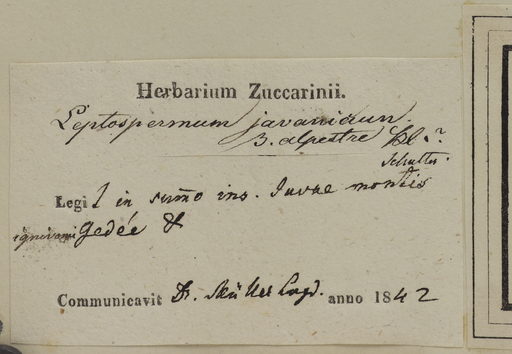 Herbarium Zuccarinii.
Leptospermum javanicum.
β. alpestre Bl.?
Schultes.
Legit in summo ins. Javae montis
ignivomi Gedée &
Communicavit Dr. Müller Lugd. anno 1842